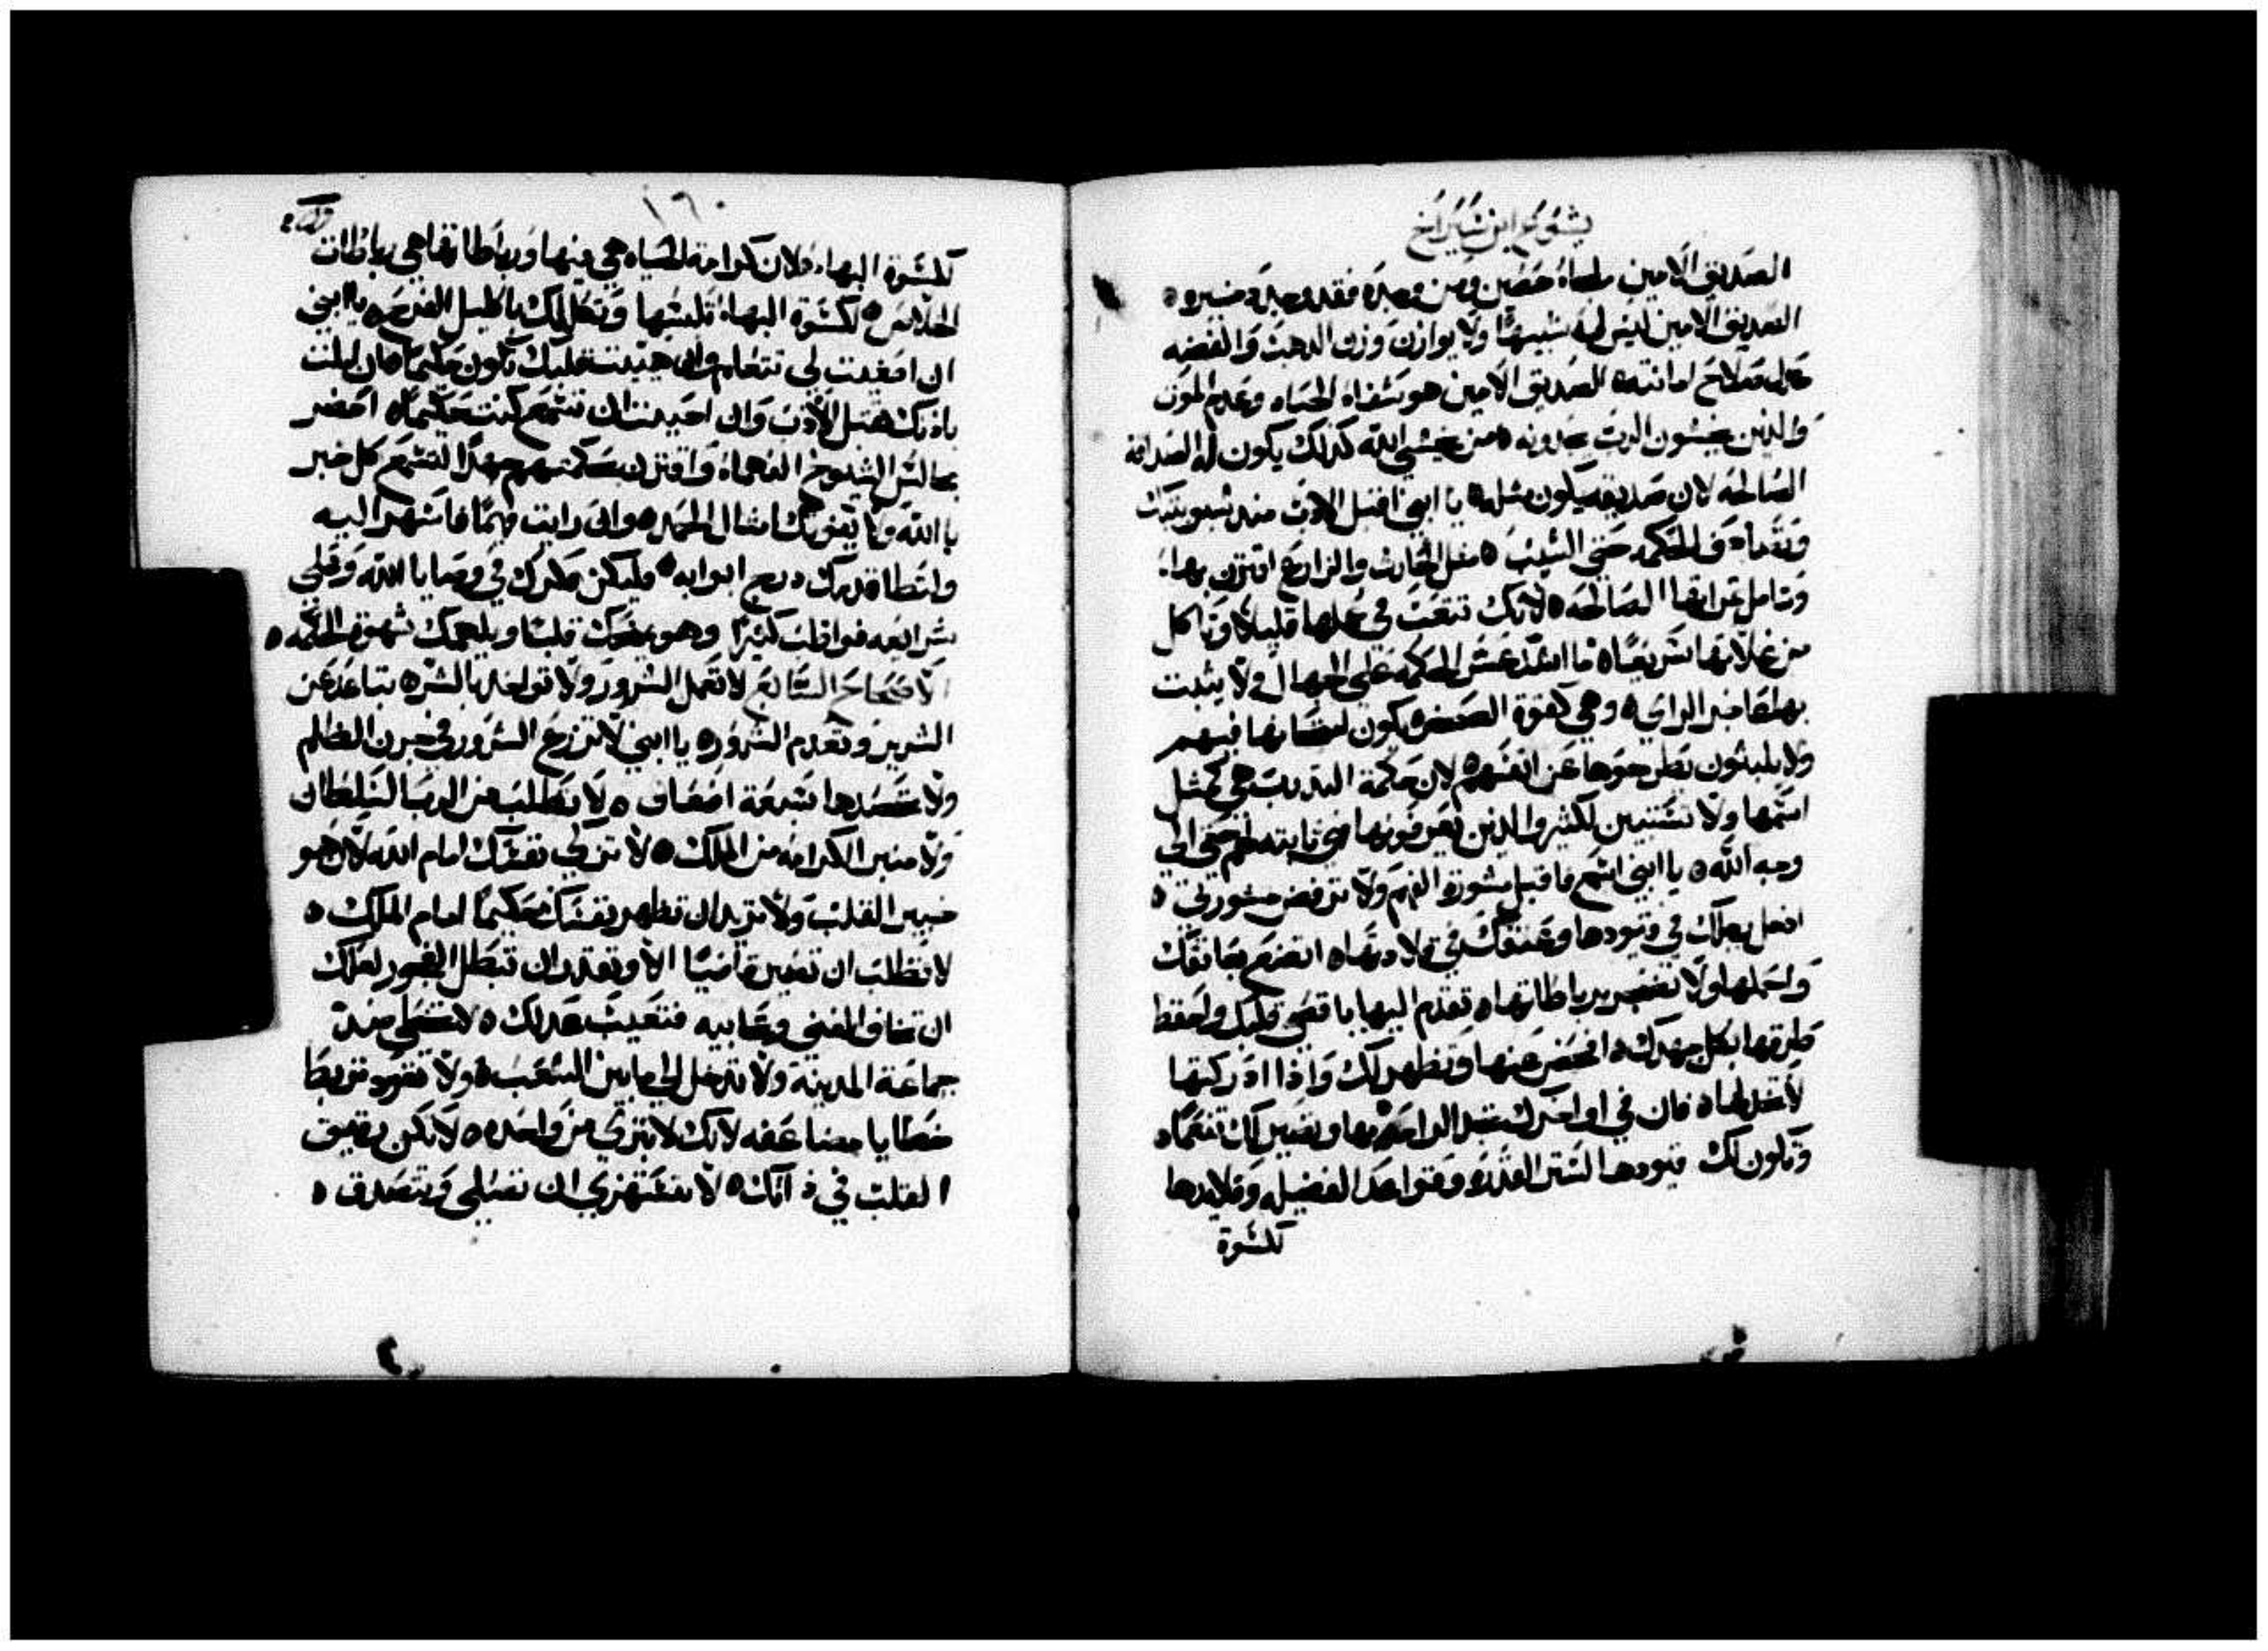 يشوع ابن شيراخ
الصديق الامين ملجاء حصين ومن وجده فقد وجد دخيره
الصديق الامين ليس له شبيها ولا يوازن وزن الدهب والفضه
صلاح امانته الصديق الامين هو شفاء الحياه وعدم الموت
والذين يخشون الرب يجدونه من يخشي الله كذلك يكون له الصداقه
الصالحه لان صديقه يكون مثله يا ابني اقبل الادب منذ شبوبيتك
وتجد الحكمه حتي الشيب مثل الحارث والزارع اقترن بها
وتامل غراتها الصالحه لانك تتعب في عملها قليلا وتاكل
من غلاتها سريعا ما اشد عسر الحكمه علي الجهال ولا يثبت
بها خاسر الراي وهي كقوة الصخر يكون امتحانها فيهم
ولا يلبثون يطرحوها عن انفسهم لان حكمة التدريب هي كمثل
اسمها ولا تستبين لكثير والذين يعرفونها هي ثابته لهم حتي الي
وجه الله يا ابني اسمع فاقبل مشورة الفهم ولا ترفض مشورتي
ادخل رجلك في قيودها وعنقك في قلادتها اتضع بعاتقك
واحملها ولا تضجر برباطاتها تقدم اليها باقصي قلبك واحفظ
طرقها بكل جهدك افحص عنها وتظهر لك واذا ادركتها
لا تخلها فان في اواخرك تجد الراحه بها وتصير لك تنعما
وتكون لك قيودها لستر القدره وقواعد الفضيله وقلايدها
لكسوة
١٦٠
لكسوة البهاء لان كرامة الحياه هي فيها ورباطاتها هي رباطات
الخلاص لكسوة البهاء تلبسها وتكللك باكليل الفرح يا ابني
ان اصغيت لي تتعلم وان هيئت قلبك تكون حكيما فان املت
باذنك تقبل الادب وان احببت ان تسمع كنت حكيما احضر
مجالس الشيوخ الفهماء واقترن بحكمتهم جهدا لتسمع كل خبر
بالله ولا يفوتك امثال الحمد وان رايت فهما فاسهر اليه
وليطا قدمك درج ابوابه وليكن فكرك في وصايا الله وعلي
شرائعه فواظب كثيرا وهو يمنحك قلبا ويلهمك شهوة الحكمه
الاصحاح السابع لا تعمل الشرور ولا تواخد بالشر تباعد عن
الشرير وتعدم الشرور يا ابني لا تزرع الشرور في حرث الظلم
ولا تحصدها سبعة اضعاف لا تطلب من الرب السلطان
ولا منبر الكرامه من الملك لا تزكي نفسك امام الله لان هو
خبير القلب ولا تريد ان تظهر نفسك حكيما امام الملك
لا تطلب ان تصير قاضيا الا وتقدر ان تبطل الفجور لعلك
ان تخاف المغني وتحابيه فتعيب عدلك لا تخطي ضد
جماعة المدينة ولا تدخل الي ما بين الشعب ولا تعود تربط
خطايا مضاعفه لانك لا تبري من واحده لا تكن بضيق
القلب في ذاتك لا تستهزي ان تصلي وتتصدق